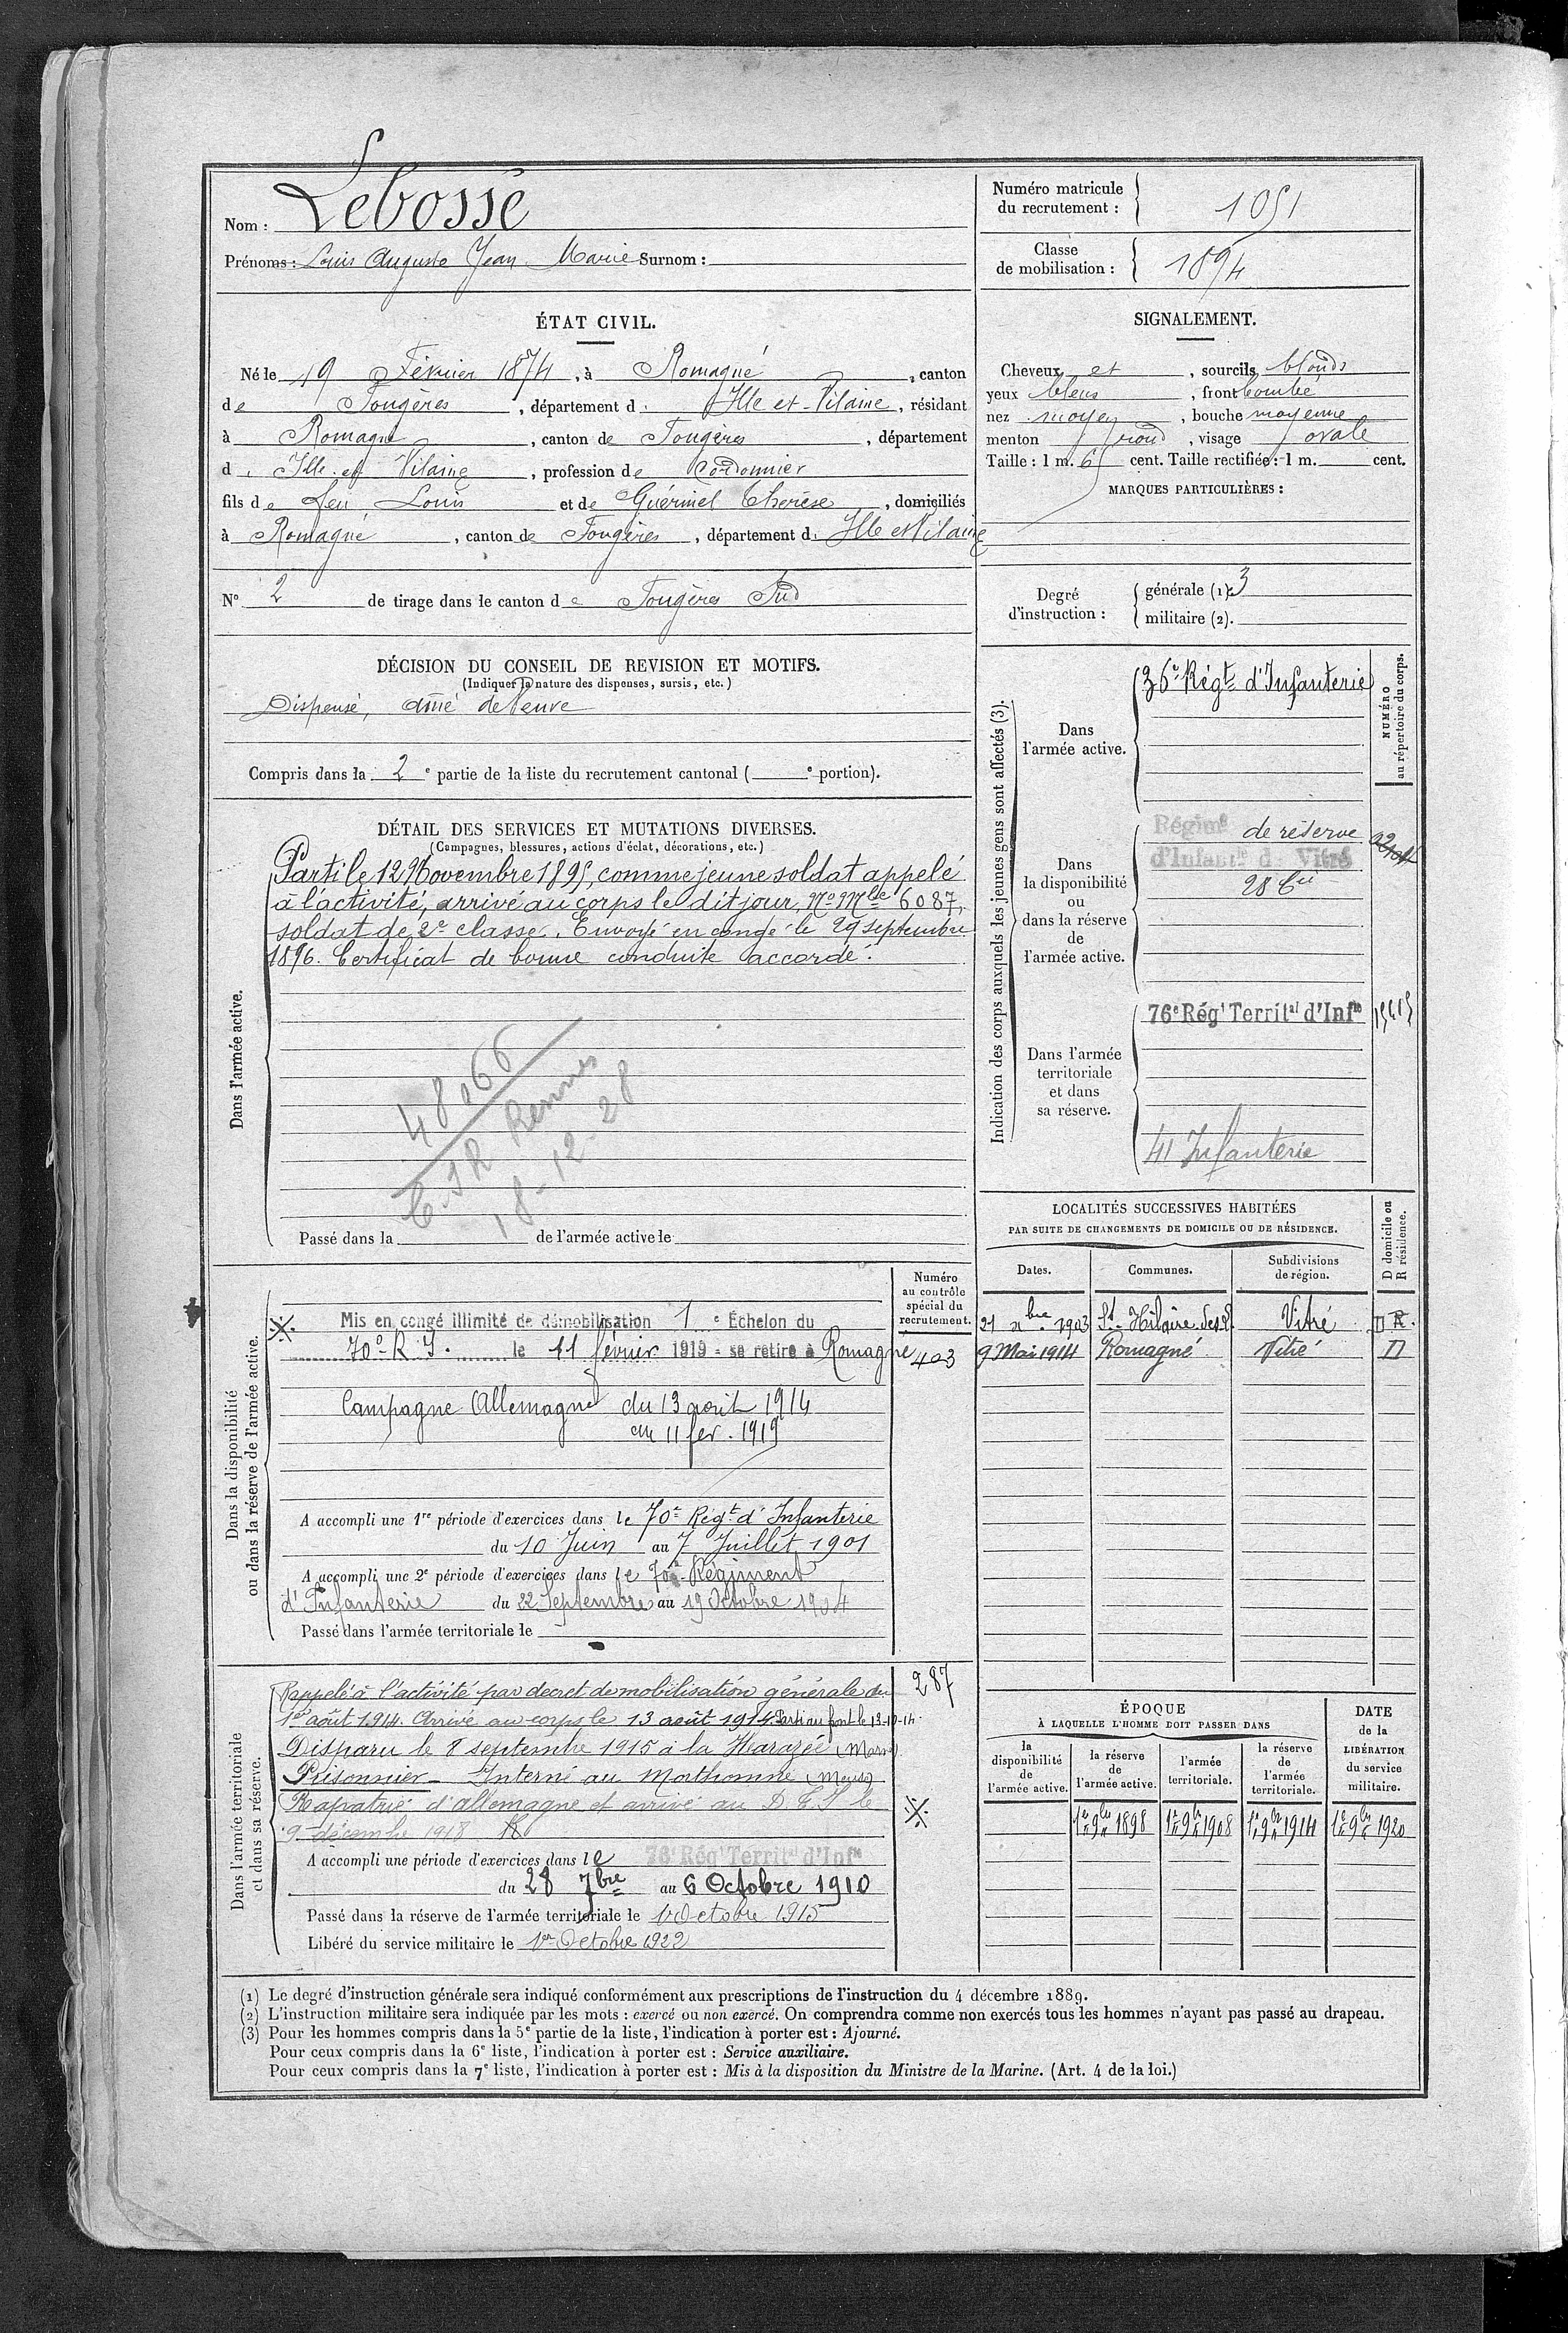 Nom : Lebossé
Prénoms : Louis Auguste Jean Marie Surnom :
Numéro matricule du recrutement : 1051
Classe de mobilisation : 1894
ÉTAT CIVIL.
Né le 19 Février 1874, à Romagné, canton
de Fougères, département d. Ille et-Vilaine, résidant
à Romagné, canton de Fougères, département
d. Ille et Vilaine, profession de Cordonnier
fils de feu Louis et de Guérinel Thérèse, domiciliés
à Romagné, canton de Fougères, département d. Ille et Vilaine
N° 2 de tirage dans le canton de Fougères Sud
SIGNALEMENT.
Cheveux et, sourcils blonds
yeux bleus, front bombé
nez moyen, bouche moyenne
menton rond, visage ovale
Taille : 1 m. 65 cent. Taille rectifiée : 1 m. cent.
MARQUES PARTICULIÈRES :
Degré d'instruction :
générale (1). 3
militaire (2).
DÉCISION DU CONSEIL DE REVISION ET MOTIFS.
(Indiquer la nature des dispenses, sursis, etc.)
Dispensé, aîné de veuve
Compris dans la 2e partie de la liste du recrutement cantonal ( e portion).
DÉTAIL DES SERVICES ET MUTATIONS DIVERSES.
(Campagnes, blessures, actions d'éclat, décorations, etc.)
Dans l'armée active.
Parti le 12 Novembre 1895, comme jeune soldat appelé
à l'activité, arrivé au corps le dit jour, No Mle 6087,
soldat de 2e classe. Envoyé en congé le 29 septembre
1896. Certificat de bonne conduite accordé.
48066
C.S R Rennes
18-12-28
Passé dans la de l'armée active le
Indication des corps auxquels les jeunes gens sont affectés (3).
NUMÉRO au répertoire du corps.
Dans l'armée active.
36e Régt d'Infanterie
Dans la disponibilité ou dans la réserve de l'armée active.
Régimt de réserve
d'Infantie de Vitré
Dans l'armée territoriale et dans sa réserve.
76e Régt Territal d'Infie
41 Infanterie
LOCALITÉS SUCCESSIVES HABITÉES
PAR SUITE DE CHANGEMENTS DE DOMICILE OU DE RÉSIDENCE.
Dates. Communes. Subdivisions de région. D domicile ou R résidence.
21 xbre 1903 St-Hilaire des L Vitré D R.
9 Mai 1914 Romagné Vitré D
Dans la disponibilité ou dans la réserve de l'armée active.
Numéro au contrôle spécial du recrutement.
Mis en congé illimité de démobilisation 1e Échelon du
70e R I. le 11 février 1919 - se retire à Romagné
403
Campagne Allemagne du 13 août 1914
au 11 fév. 1919
A accompli une 1re période d'exercices dans le 70e Régt d'Infanterie
du 10 Juin au 7 Juillet 1901
A accompli une 2e période d'exercices dans le 70e Régiment
d'Infanterie du 22 Septembre au 19 Octobre 1904
Passé dans l'armée territoriale le
Dans l'armée territoriale et dans sa réserve.
287
Rappelé à l'activité par decret de mobilisation générale du
1er août 1914. Arrivé au corps le 13 août 1914. Parti au front le 13-10-14.
Disparu le 8 septembre 1915 à la Harazée (Marne)
Prisonnier - Interné au Morthomme (Meuse)
Rapatrié d'allemagne et arrivé au D.C.I le
9 décembre 1918
A accompli une période d'exercices dans le 76e Régt Territal d'Infie
du 28 7bre au 6 Octobre 1910
Passé dans la réserve de l'armée territoriale le 1 Octobre 1915
Libéré du service militaire le 1er Octobre 1922
ÉPOQUE
À LAQUELLE L'HOMME DOIT PASSER DANS
la disponibilité de l'armée active. la réserve de l'armée active. l'armée territoriale. la réserve de l'armée territoriale.
DATE de la LIBÉRATION du service militaire.
1er 9bre 1898 1er 9bre 1908 1er 9bre 1914 1er 9bre 1920
(1) Le degré d'instruction générale sera indiqué conformément aux prescriptions de l'instruction du 4 décembre 1889.
(2) L'instruction militaire sera indiquée par les mots : exercé ou non exercé. On comprendra comme non exercés tous les hommes n'ayant pas passé au drapeau.
(3) Pour les hommes compris dans la 5e partie de la liste, l'indication à porter est : Ajourné.
Pour ceux compris dans la 6e liste, l'indication à porter est : Service auxiliaire.
Pour ceux compris dans la 7e liste, l'indication à porter est : Mis à la disposition du Ministre de la Marine. (Art. 4 de la loi.)